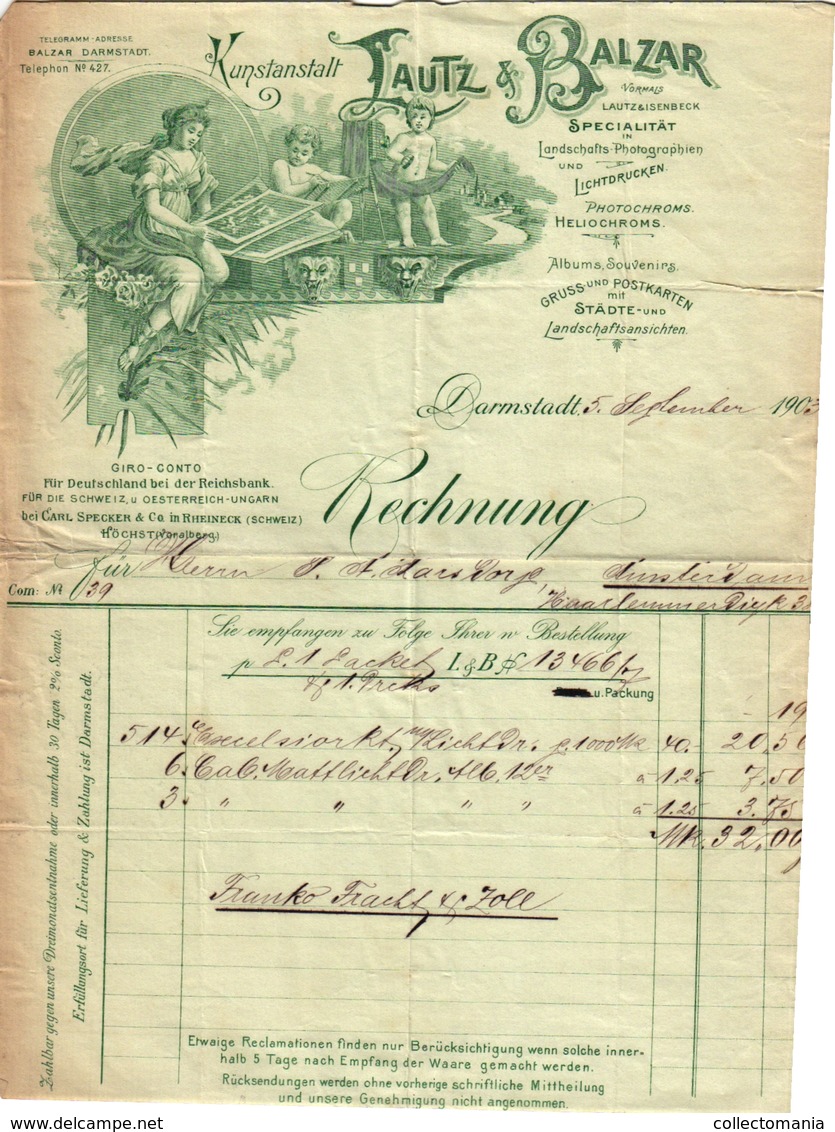 TELEGRAMM-ADRESSE
BALZAR DARMSTADT.
Telephon № 427.
Kunstanstalt LAUTZ & BALZAR
VORMALS
LAUTZ & ISENBECK
SPECIALITÄT
IN
Landschafts-Photographien
UND
LICHTDRUCKEN.
PHOTOCHROMS.
HELIOCHROMS.
Albums, Souvenirs.
GRUSS-UND POSTKARTEN
mit
STÄDTE-UND
Landschaftsansichten.
Darmstadt, 5. September 1903
GIRO-CONTO
Für Deutschland bei der Reichsbank.
FÜR DIE SCHWEIZ, u OESTERREICH-UNGARN
bei CARL SPECKER & Co. in RHEINECK (SCHWEIZ)
HÖCHST (Voralberg.)
Rechnung
für Herrn Amsterdam
Com: № 39
Sie empfangen zu Folge Ihrer w Bestellung
p 1 Packet L & B № 13466
& 1. Preks
u. Packung
19
514. Excelsiorkt. m/LichtDr. p. 1000 Mk 40. 20,50
6. Cab. MattlichtDr. Alb. 12er à 1.25 7,50
3. " " " " à 1.25 3.75
Mk. 32,00
Franko Fracht & Zoll
Zahlbar gegen unsere Dreimonatsentnahme oder innerhalb 30 Tagen 2% Sconto.
Erfüllungsort für Lieferung & Zahlung ist Darmstadt.
Etwaige Reclamationen finden nur Berücksichtigung wenn solche inner-
halb 5 Tage nach Empfang der Waare gemacht werden.
Rücksendungen werden ohne vorherige schriftliche Mittheilung
und unsere Genehmigung nicht angenommen.
collectomania